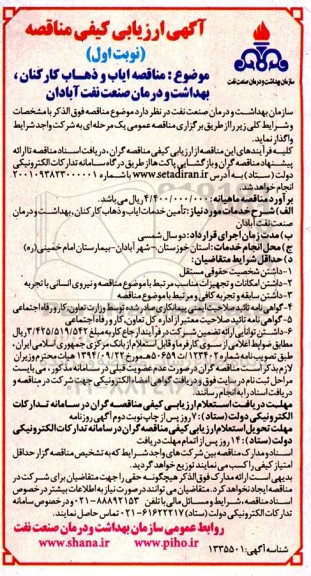 آگهی ارزیابی کیفی مناقصه
(نوبت اول)
موضوع : مناقصه ایاب و ذهاب کارکنان ،
بهداشت و درمان صنعت نفت آبادان
سازمان بهداشت و درمان صنعت نفت
سازمان بهداشت و درمان صنعت نفت در نظر دارد موضوع مناقصه فوق الذکر با مشخصات
و شرایط کلی زیر را از طریق برگزاری مناقصه عمومی یک مرحله ای به شرکت واجد شرایط
واگذار نماید.
کلیه فرآیندهای این مناقصه از ارزیابی کیفی مناقصه گران ، دریافت اسناد مناقصه تا ارائه
پیشنهاد مناقصه گران و بازگشایی پاکت ها از طریق درگاه سامانه تدارکات الکترونیکی
دولت (ستاد) به آدرس www.setadiran.ir با شماره ۲۰۰۱۰۹۳۸۲۳۰۰۰۰۰۱
انجام خواهد شد.
برآورد مناقصه ماهیانه: ۴/۴۰۰/۰۰۰/۰۰۰ ریال می باشد.
الف) شرح خدمات مورد نیاز: تأمین خدمات ایاب و ذهاب کارکنان، بهداشت و درمان
صنعت نفت آبادان
ب) مدت زمان اجرای قرارداد: دو سال شمسی
ج) محل انجام خدمات: استان خوزستان - شهر آبادان - بیمارستان امام خمینی (ره)
د) حداقل شرایط متقاضیان:
۱- داشتن شخصیت حقوقی مستقل
۲- داشتن امکانات و تجهیزات مناسب مرتبط با موضوع مناقصه و نیروی انسانی با تجربه
۳- داشتن سابقه و تجربه کافی و مرتبط با موضوع مناقصه
۴- گواهی نامه تائید صلاحیت ایمنی پیمانکاری صادر شده توسط وزارت تعاون، کار و رفاه اجتماعی
۵- گواهی نامه تائید صلاحیت معتبر از اداره کل تعاون، کار و رفاه اجتماعی
۶- داشتن توانایی ارائه تضمین شرکت در فرآیند ارجاع کار به مبلغ ۳/۴۲۵/۵۱۹/۵۴۲ ریال
مطابق ضوابط اعلامی از سوی کارفرما و قابل استفاده از بانک مرکزی جمهوری اسلامی ایران،
طبق تصویب نامه شماره ۱۲۳۴۰۲/ت۵۰۶۵۹ه مورخ ۱۳۹۴/۰۹/۲۲ هیات محترم وزیران
لازم بذکر است مناقصه گران در صورت عدم عضویت قبلی در سامانه مذکور، می بایست
مراحل ثبت نام در سایت فوق و دریافت گواهی امضاء الکترونیکی جهت شرکت در مناقصه و
دریافت اسناد را به انجام رسانند.
مهلت دریافت استعلام ارزیابی کیفی مناقصه گران در سامانه تدارکات
الکترونیکی دولت (ستاد): ۷ روز پس از چاپ نوبت دوم آگهی روزنامه
مهلت تحویل استعلام ارزیابی کیفی مناقصه گران در سامانه تدارکات الکترونیکی
دولت (ستاد): ۱۴ روز پس از اتمام مهلت دریافت
اسناد و مدارک مناقصه بین شرکت های واجد شرایط که به تشخیص مناقصه گزار حداقل
امتیاز کیفی را کسب می نمایند توزیع خواهد گردید.
بدیهی است ارائه مدارک فوق الذکر هیچگونه حقی را جهت متقاضیان برای شرکت در
مناقصه ایجاد نخواهد کرد. متقاضیان می توانند در صورت نیاز به اطلاعات بیشتر در خصوص
اسناد مناقصه ، شرایط و مسائل مالی با تلفن ۸۸۸۹۲۱۵۳-۰۲۱ و در خصوص سامانه
تدارکات الکترونیکی دولت (ستاد) ۶۱۶۲۲۲۱۷-۰۲۱ تماس حاصل نمایند.
روابط عمومی سازمان بهداشت و درمان صنعت نفت
www.shana.ir www.piho.ir
شناسه آگهی: ۱۳۳۵۵۰۱